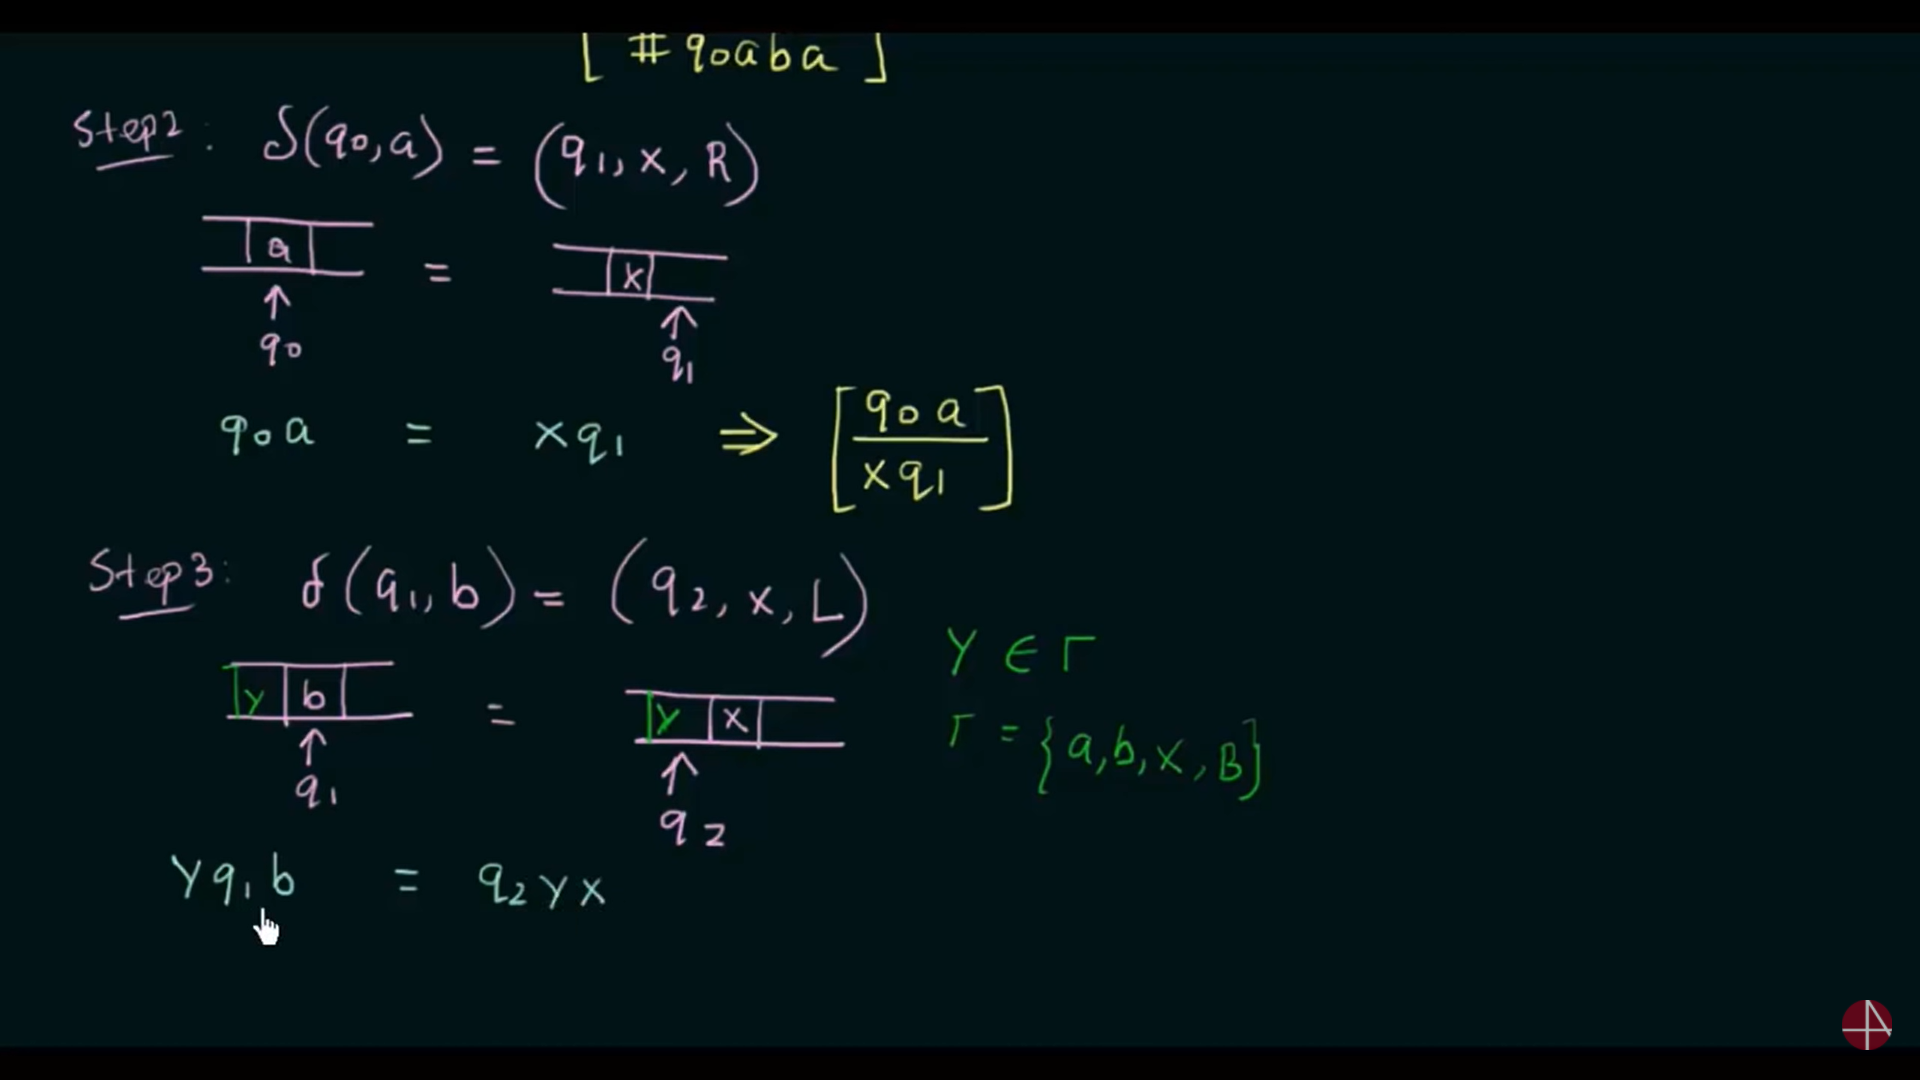 [ # q0aba ]
Step2: δ(q0,a) = (q1, x, R)
a = x
q0 q1
q0a = xq1 ⇒ [q0a / xq1]
Step3: δ(q1,b) = (q2, x, L)
Y ∈ Γ
y b = y x
Γ = {a,b,x,B}
q1 q2
Yq1b = q2yx